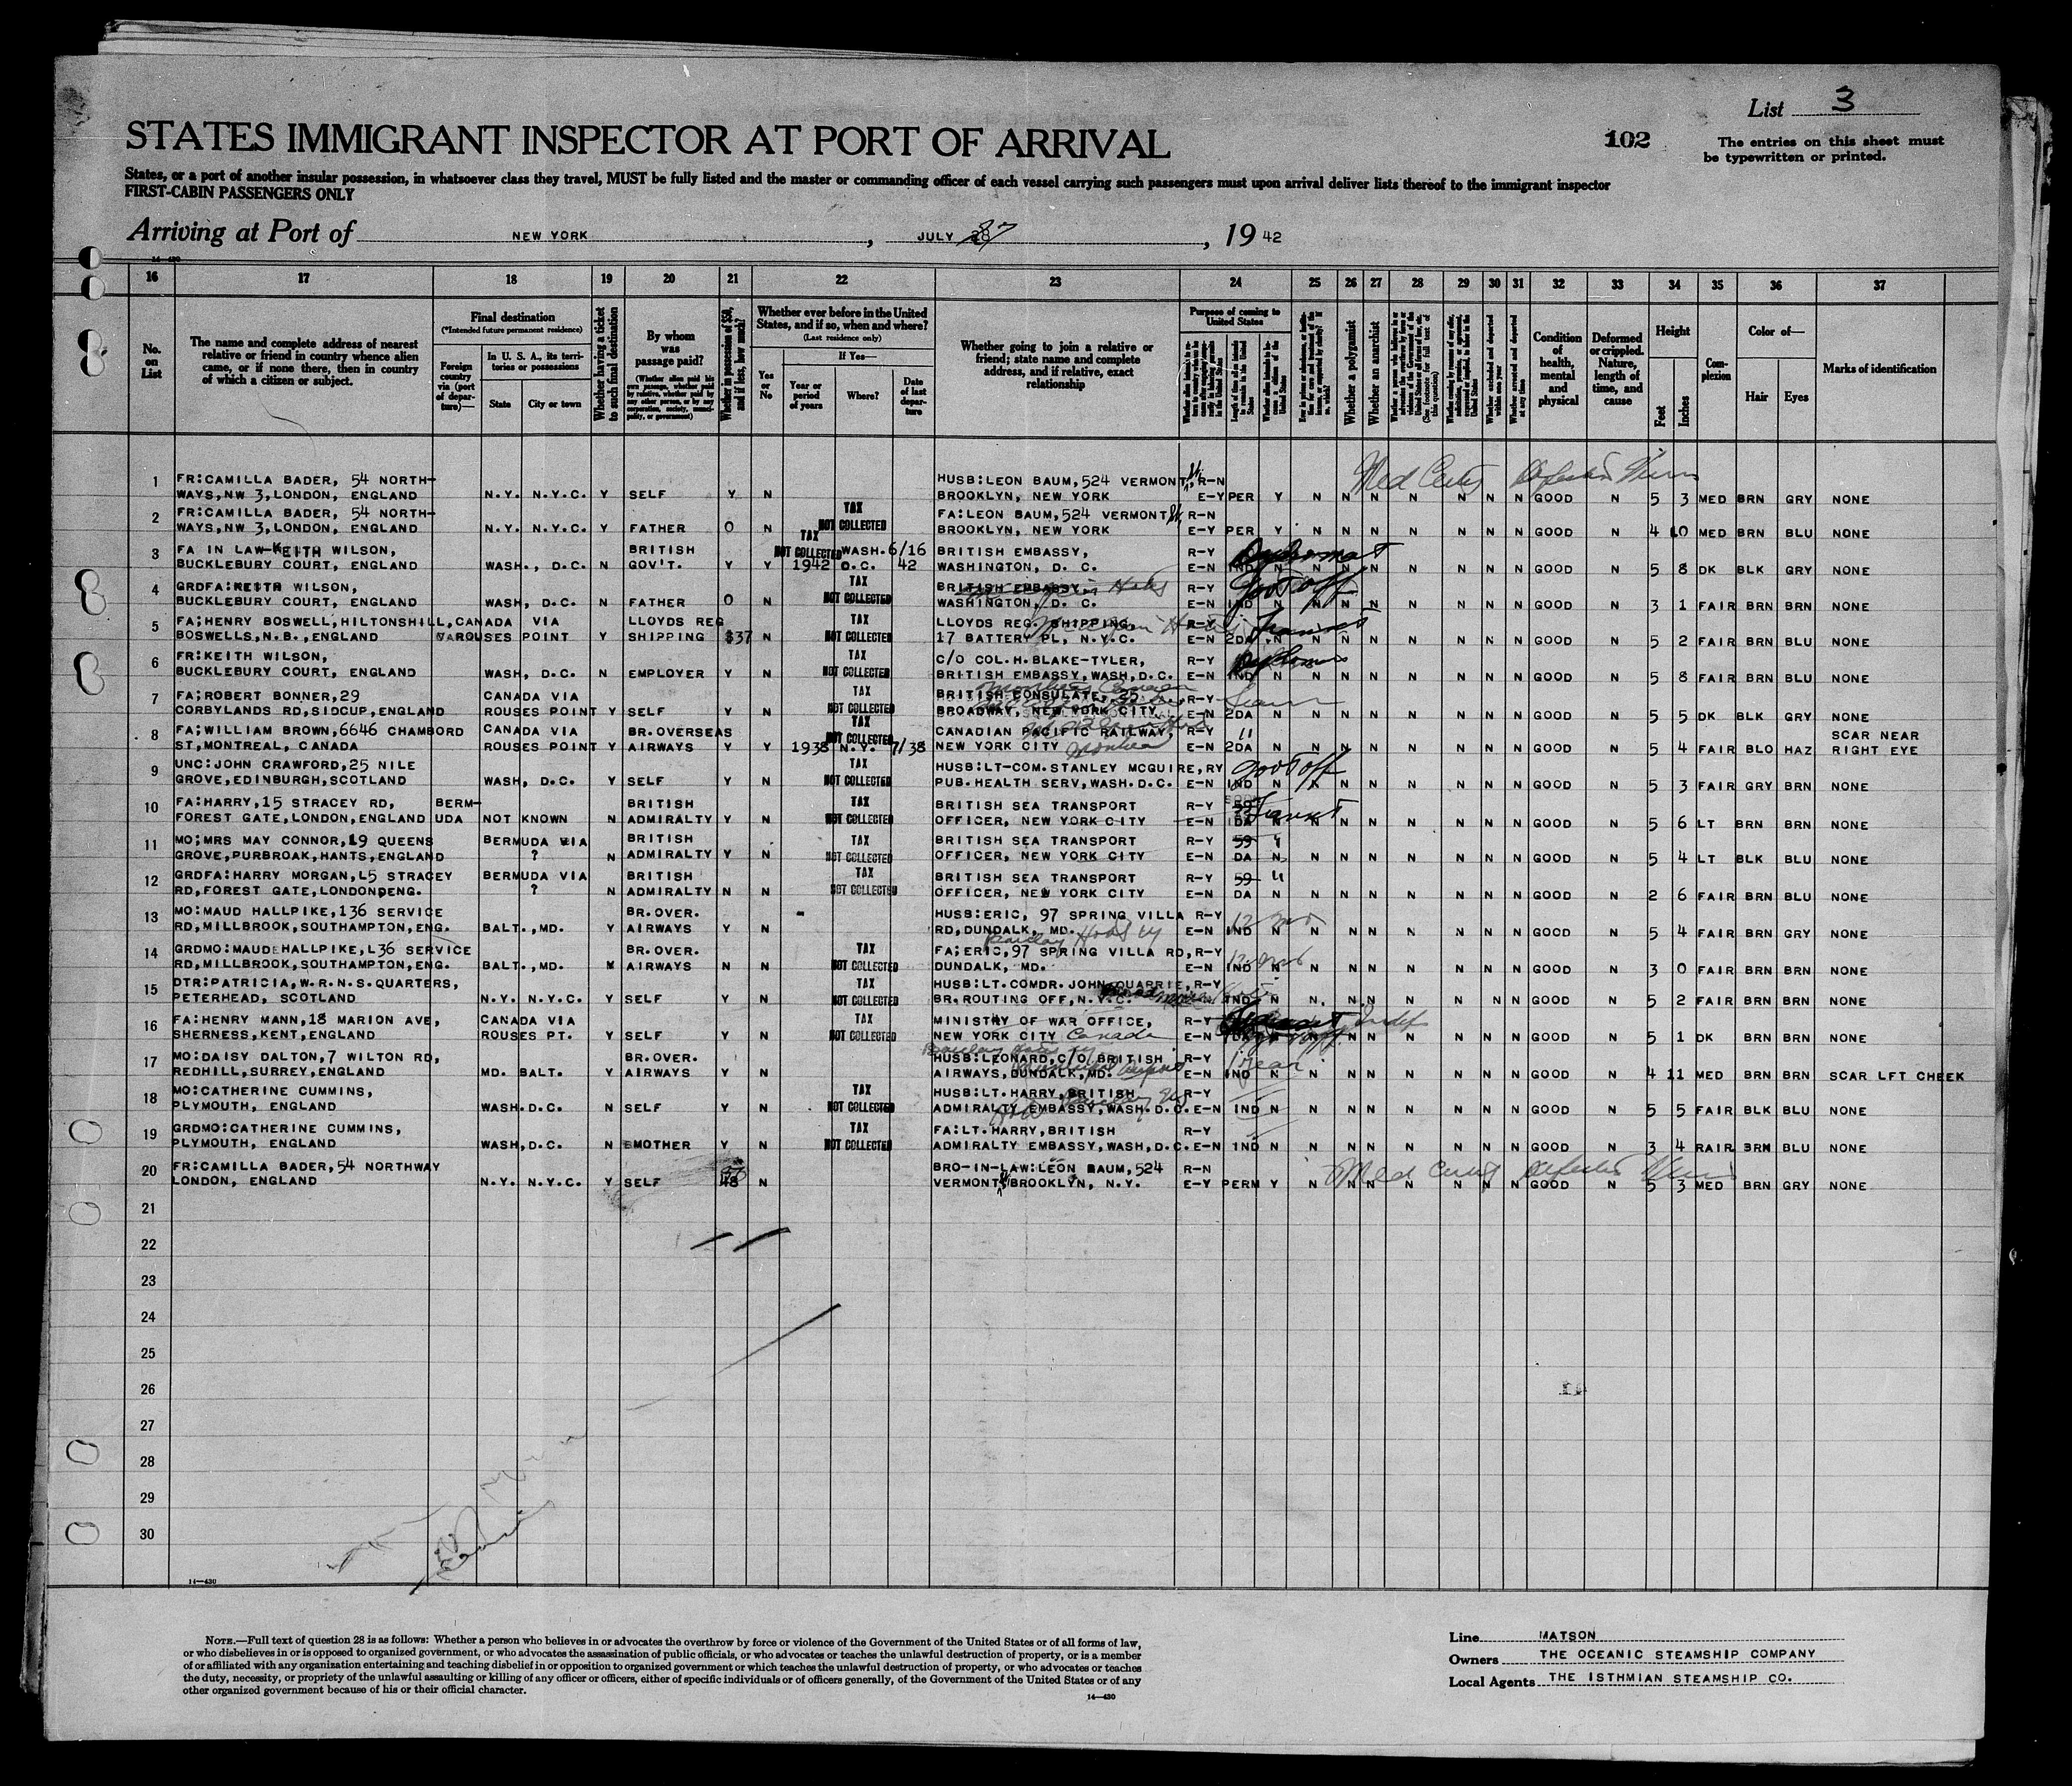 List 3
STATES IMMIGRANT INSPECTOR AT PORT OF ARRIVAL
102
The entries on this sheet must
be typewritten or printed.
States, or a port of another insular possession, in whatsoever class they travel, MUST be fully listed and the master or commanding officer of each vessel carrying such passengers must upon arrival deliver lists thereof to the immigrant inspector
FIRST-CABIN PASSENGERS ONLY
Arriving at Port of NEW YORK, JULY 27, 1942
16 17 18 19 20 21 22 23 24 25 26 27 28 29 30 31 32 33 34 35 36 37
No. on List
The name and complete address of nearest relative or friend in country whence alien came, or if none there, then in country of which a citizen or subject.
Final destination
(*Intended future permanent residence)
Foreign country via (port of departure)—
In U. S. A., its territories or possessions
State
City or town
Whether having a ticket to such final destination
By whom was passage paid?
Whether in possession of $50, and if less, how much?
Whether ever before in the United States, and if so, when and where?
(Last residence only)
Yes or No
If Yes—
Year or period of years
Where?
Date of last departure
Whether going to join a relative or friend; state name and complete address, and if relative, exact relationship
Purpose of coming to United States
Whether a polygamist
Whether an anarchist
Condition of health, mental and physical
Deformed or crippled. Nature, length of time, and cause
Height
Feet
Inches
Complexion
Color of—
Hair
Eyes
Marks of identification
1 FR:CAMILLA BADER, 54 NORTH- HUSB:LEON BAUM,524 VERMONT R-N
WAYS,NW 3,LONDON, ENGLAND N.Y. N.Y.C. Y SELF Y N BROOKLYN, NEW YORK E-Y PER Y N N N N N N N GOOD N 5 3 MED BRN GRY NONE
2 FR:CAMILLA BADER, 54 NORTH- TAX FA:LEON BAUM,524 VERMONT R-N
WAYS,NW 3,LONDON, ENGLAND N.Y. N.Y.C. Y FATHER 0 N NOT COLLECTED BROOKLYN, NEW YORK E-Y PER Y N N N N N N N GOOD N 4 10 MED BRN BLU NONE
3 FA IN LAW-KEITH WILSON, BRITISH TAX NOT COLLECTED WASH. 6/16 BRITISH EMBASSY, R-Y Diplomat
BUCKLEBURY COURT, ENGLAND WASH., D.C. N GOV'T. Y Y 1942 D.C. 42 WASHINGTON, D. C. E-N IND N N N N N N N N GOOD N 5 8 DK BLK GRY NONE
4 GRDFA:KEITH WILSON, TAX BRITISH EMBASSY R-Y Govt off
BUCKLEBURY COURT, ENGLAND WASH, D.C. N FATHER 0 N NOT COLLECTED WASHINGTON, D. C. E-N IND N N N N N N N N GOOD N 3 1 FAIR BRN BRN NONE
5 FA;HENRY BOSWELL,HILTONSHILL,CANADA VIA LLOYDS REG TAX LLOYDS REG. SHIPPING, R-Y Transit
BOSWELLS,N.B.,ENGLAND ROUSES POINT Y SHIPPING $37 N NOT COLLECTED 17 BATTERY PL, N.Y.C. E-N 2DA N N N N N N N N GOOD N 5 2 FAIR BRN BLU NONE
6 FR:KEITH WILSON, TAX C/O COL.H.BLAKE-TYLER, R-Y
BUCKLEBURY COURT, ENGLAND WASH, D.C. N EMPLOYER Y N NOT COLLECTED BRITISH EMBASSY,WASH,D.C. E-N IND N N N N N N N N GOOD N 5 8 FAIR BRN BLU NONE
7 FA;ROBERT BONNER,29 CANADA VIA TAX BRITISH CONSULATE, 25 R-Y
CORBYLANDS RD,SIDCUP,ENGLAND ROUSES POINT Y SELF Y N NOT COLLECTED BROADWAY, NEW YORK CITY E-N 2DA N N N N N N N GOOD N 5 5 DK BLK GRY NONE
8 FA;WILLIAM BROWN,6646 CHAMBORD CANADA VIA BR.OVERSEAS TAX NOT COLLECTED CANADIAN PACIFIC RAILWAY, R-Y SCAR NEAR
ST,MONTREAL, CANADA ROUSES POINT Y AIRWAYS Y Y 1938 N.Y. 7/38 NEW YORK CITY Montreal E-N 2DA N N N N N N N N GOOD N 5 4 FAIR BLO HAZ RIGHT EYE
9 UNC:JOHN CRAWFORD,25 NILE TAX HUSB:LT-COM.STANLEY MCGUIRE,RY Govt off
GROVE,EDINBURGH,SCOTLAND WASH, D.C. Y SELF Y N NOT COLLECTED PUB.HEALTH SERV,WASH.D.C. E-N IND N N N N N N N N GOOD N 5 3 FAIR GRY BRN NONE
10 FA:HARRY,15 STRACEY RD, BERM- BRITISH TAX BRITISH SEA TRANSPORT R-Y 59 Transit
FOREST GATE,LONDON,ENGLAND UDA NOT KNOWN N ADMIRALTY Y N NOT COLLECTED OFFICER, NEW YORK CITY E-N DA N N N N N N N N GOOD N 5 6 LT BRN BRN NONE
11 MO;MRS MAY CONNOR,19 QUEENS BERMUDA VIA BRITISH TAX BRITISH SEA TRANSPORT R-Y 59 "
GROVE,PURBROAK,HANTS,ENGLAND ? N ADMIRALTY Y N NOT COLLECTED OFFICER, NEW YORK CITY E-N DA N N N N N N N N GOOD N 5 4 LT BLK BLU NONE
12 GRDFA:HARRY MORGAN,L5 STRACEY BERMUDA VIA BRITISH TAX BRITISH SEA TRANSPORT R-Y 59 "
RD,FOREST GATE,LONDON,ENG. ? N ADMIRALTY N N NOT COLLECTED OFFICER, NEW YORK CITY E-N DA N N N N N N N N GOOD N 2 6 FAIR BRN BLU NONE
13 MO:MAUD HALLPIKE,136 SERVICE BR.OVER. HUSB:ERIC, 97 SPRING VILLA R-Y
RD,MILLBROOK,SOUTHAMPTON,ENG. BALT.,MD. Y AIRWAYS Y N RD,DUNDALK, MD. E-N IND N N N N N N N N GOOD N 5 4 FAIR BRN GRY NONE
14 GRDMO:MAUDEHALLPIKE,L36 SERVICE BR.OVER. TAX FA;ERIC,97 SPRING VILLA RD,R-Y
RD,MILLBROOK,SOUTHAMPTON,ENG. BALT.,MD. AIRWAYS N N NOT COLLECTED DUNDALK, MD. E-N IND N N N N N N N N GOOD N 3 0 FAIR BRN BRN NONE
15 DTR:PATRICIA,W.R.N.S.QUARTERS, TAX HUSB:LT.COMDR.JOHN QUARRIE,R-Y
PETERHEAD, SCOTLAND N.Y. N.Y.C. Y SELF Y N NOT COLLECTED BR.ROUTING OFF,N.Y.C. IND N N N N N N N N GOOD N 5 2 FAIR BRN BRN NONE
16 FA:HENRY MANN,18 MARION AVE, CANADA VIA TAX MINISTRY OF WAR OFFICE, R-Y
SHERNESS,KENT,ENGLAND ROUSES PT. Y SELF Y N NOT COLLECTED NEW YORK CITY Canada E-N N N N N N N N GOOD N 5 1 DK BRN BRN NONE
17 MO:DAISY DALTON,7 WILTON RD, BR.OVER. HUSB:LEONARD,C/O BRITISH R-Y 1 year
REDHILL,SURREY,ENGLAND MD. BALT. Y AIRWAYS Y N AIRWAYS,DUNDALK,MD. E-N IND N N N N N N N N GOOD N 4 11 MED BRN BRN SCAR LFT CHEEK
18 MO:CATHERINE CUMMINS, TAX HUSB:LT.HARRY,BRITISH R-Y
PLYMOUTH, ENGLAND WASH.D.C. N SELF Y N NOT COLLECTED ADMIRALTY EMBASSY,WASH.D.C.E-N IND N N N N N N N N GOOD N 5 5 FAIR BLK BLU NONE
19 GRDMO:CATHERINE CUMMINS, TAX FA:LT.HARRY,BRITISH R-Y
PLYMOUTH, ENGLAND WASH,D.C. N MOTHER Y N NOT COLLECTED ADMIRALTY EMBASSY,WASH,D.C.E-N IND N N N N N N N N GOOD N 3 4 RAIR BRN BLU NONE
20 FR:CAMILLA BADER,54 NORTHWAY BRO-IN-LAW:LEON BAUM,524 R-N
LONDON, ENGLAND N.Y. N.Y.C. Y SELF N VERMONT BROOKLYN, N.Y. E-Y PERM Y N N N N N N N GOOD N 5 3 MED BRN GRY NONE
21
22
23
24
25
26
27
28
29
30
14—430
NOTE.—Full text of question 28 is as follows: Whether a person who believes in or advocates the overthrow by force or violence of the Government of the United States or of all forms of law,
or who disbelieves in or is opposed to organized government, or who advocates the assassination of public officials, or who advocates or teaches the unlawful destruction of property, or is a member
of or affiliated with any organization entertaining and teaching disbelief in or opposition to organized government or which teaches the unlawful destruction of property, or who advocates or teaches
the duty, necessity, or propriety of the unlawful assaulting or killing of any officer or officers, either of specific individuals or of officers generally, of the Government of the United States or of any
other organized government because of his or their official character.
14—430
Line MATSON
Owners THE OCEANIC STEAMSHIP COMPANY
Local Agents THE ISTHMIAN STEAMSHIP CO.